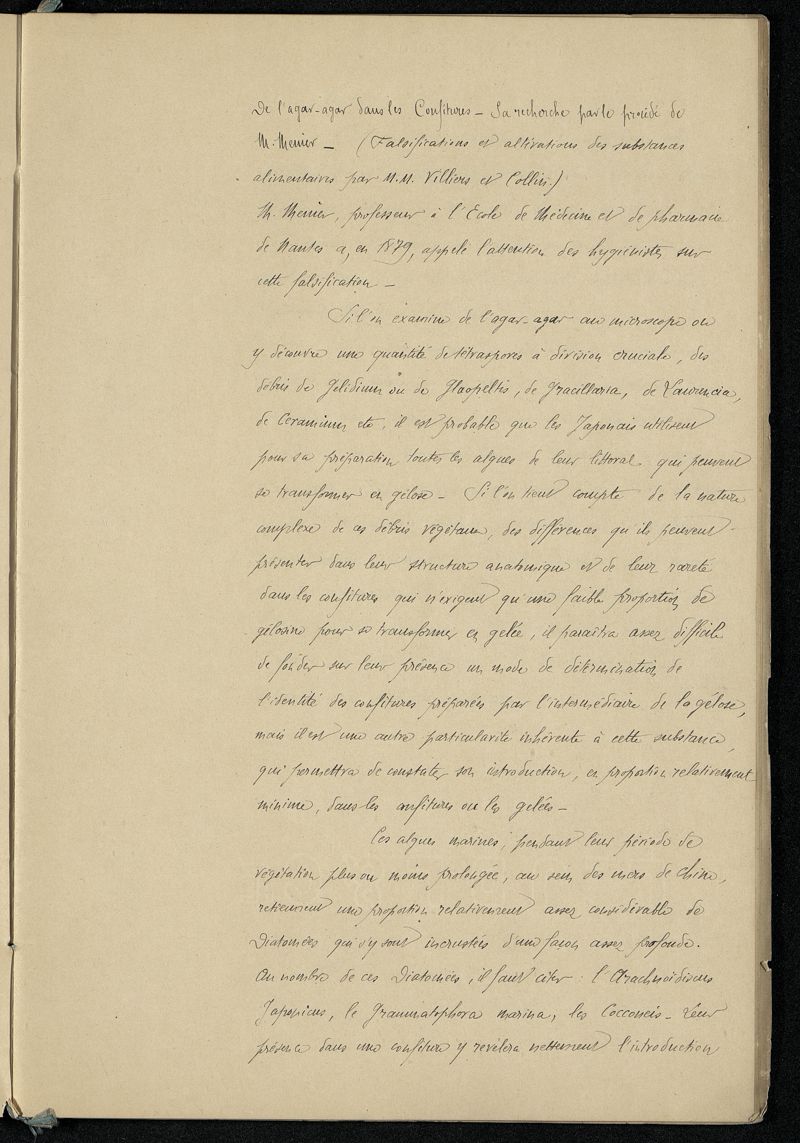 De l'agar-agar dans les Confitures – Sa recherche par le procédé de
M. Menier – (Falsifications et altérations des substances
alimentaires par M.M. Villiers et Collin)
M. Menier, professeur à l'Ecole de Médecine et de pharmacie
de Nantes a, en 1879, appelé l'attention des hygiénistes sur
cette falsification –
Si l'on examine de l'agar-agar au microscope on
y découvre une quantité de tétraspores à division cruciale, des
débris de Gelidium ou de Glaopeltis, de Gracillaria, de Laurencia,
de Ceramium etc, il est probable que les Japonais utilisent
pour sa préparation toutes les algues de leur littoral qui peuvent
se transformer en gélose – Si l'on tient compte de la nature
complexe de ces débris végétaux, des différences qu'ils peuvent
présenter dans leur structure anatomique et de leur rareté
dans les confitures qui n'exigent qu'une faible proportion de
gélosine pour se transformer en gelée, il paraîtra assez difficile
de fonder sur leur présence un mode de détermination de
l'identité des confitures préparées par l'intermédiaire de la gélose,
mais il est une autre particularité inhérente à cette substance,
qui permettra de constater son introduction, en proportion relativement
minime, dans les confitures ou les gelées –
Ces algues marines, pendant leur période de
végétation plus ou moins prolongée, au sein des mers de Chine,
retiennent une proportion relativement assez considérable de
Diatomées qui s'y sont incrustées d'une façon assez profonde.
Au nombre de ces Diatomées, il faut citer : l'Arachnoidiscus
Japonicus, le Grammatophora marina, les Cocconeis – Leur
présence dans une confiture y révèlera nettement l'introduction